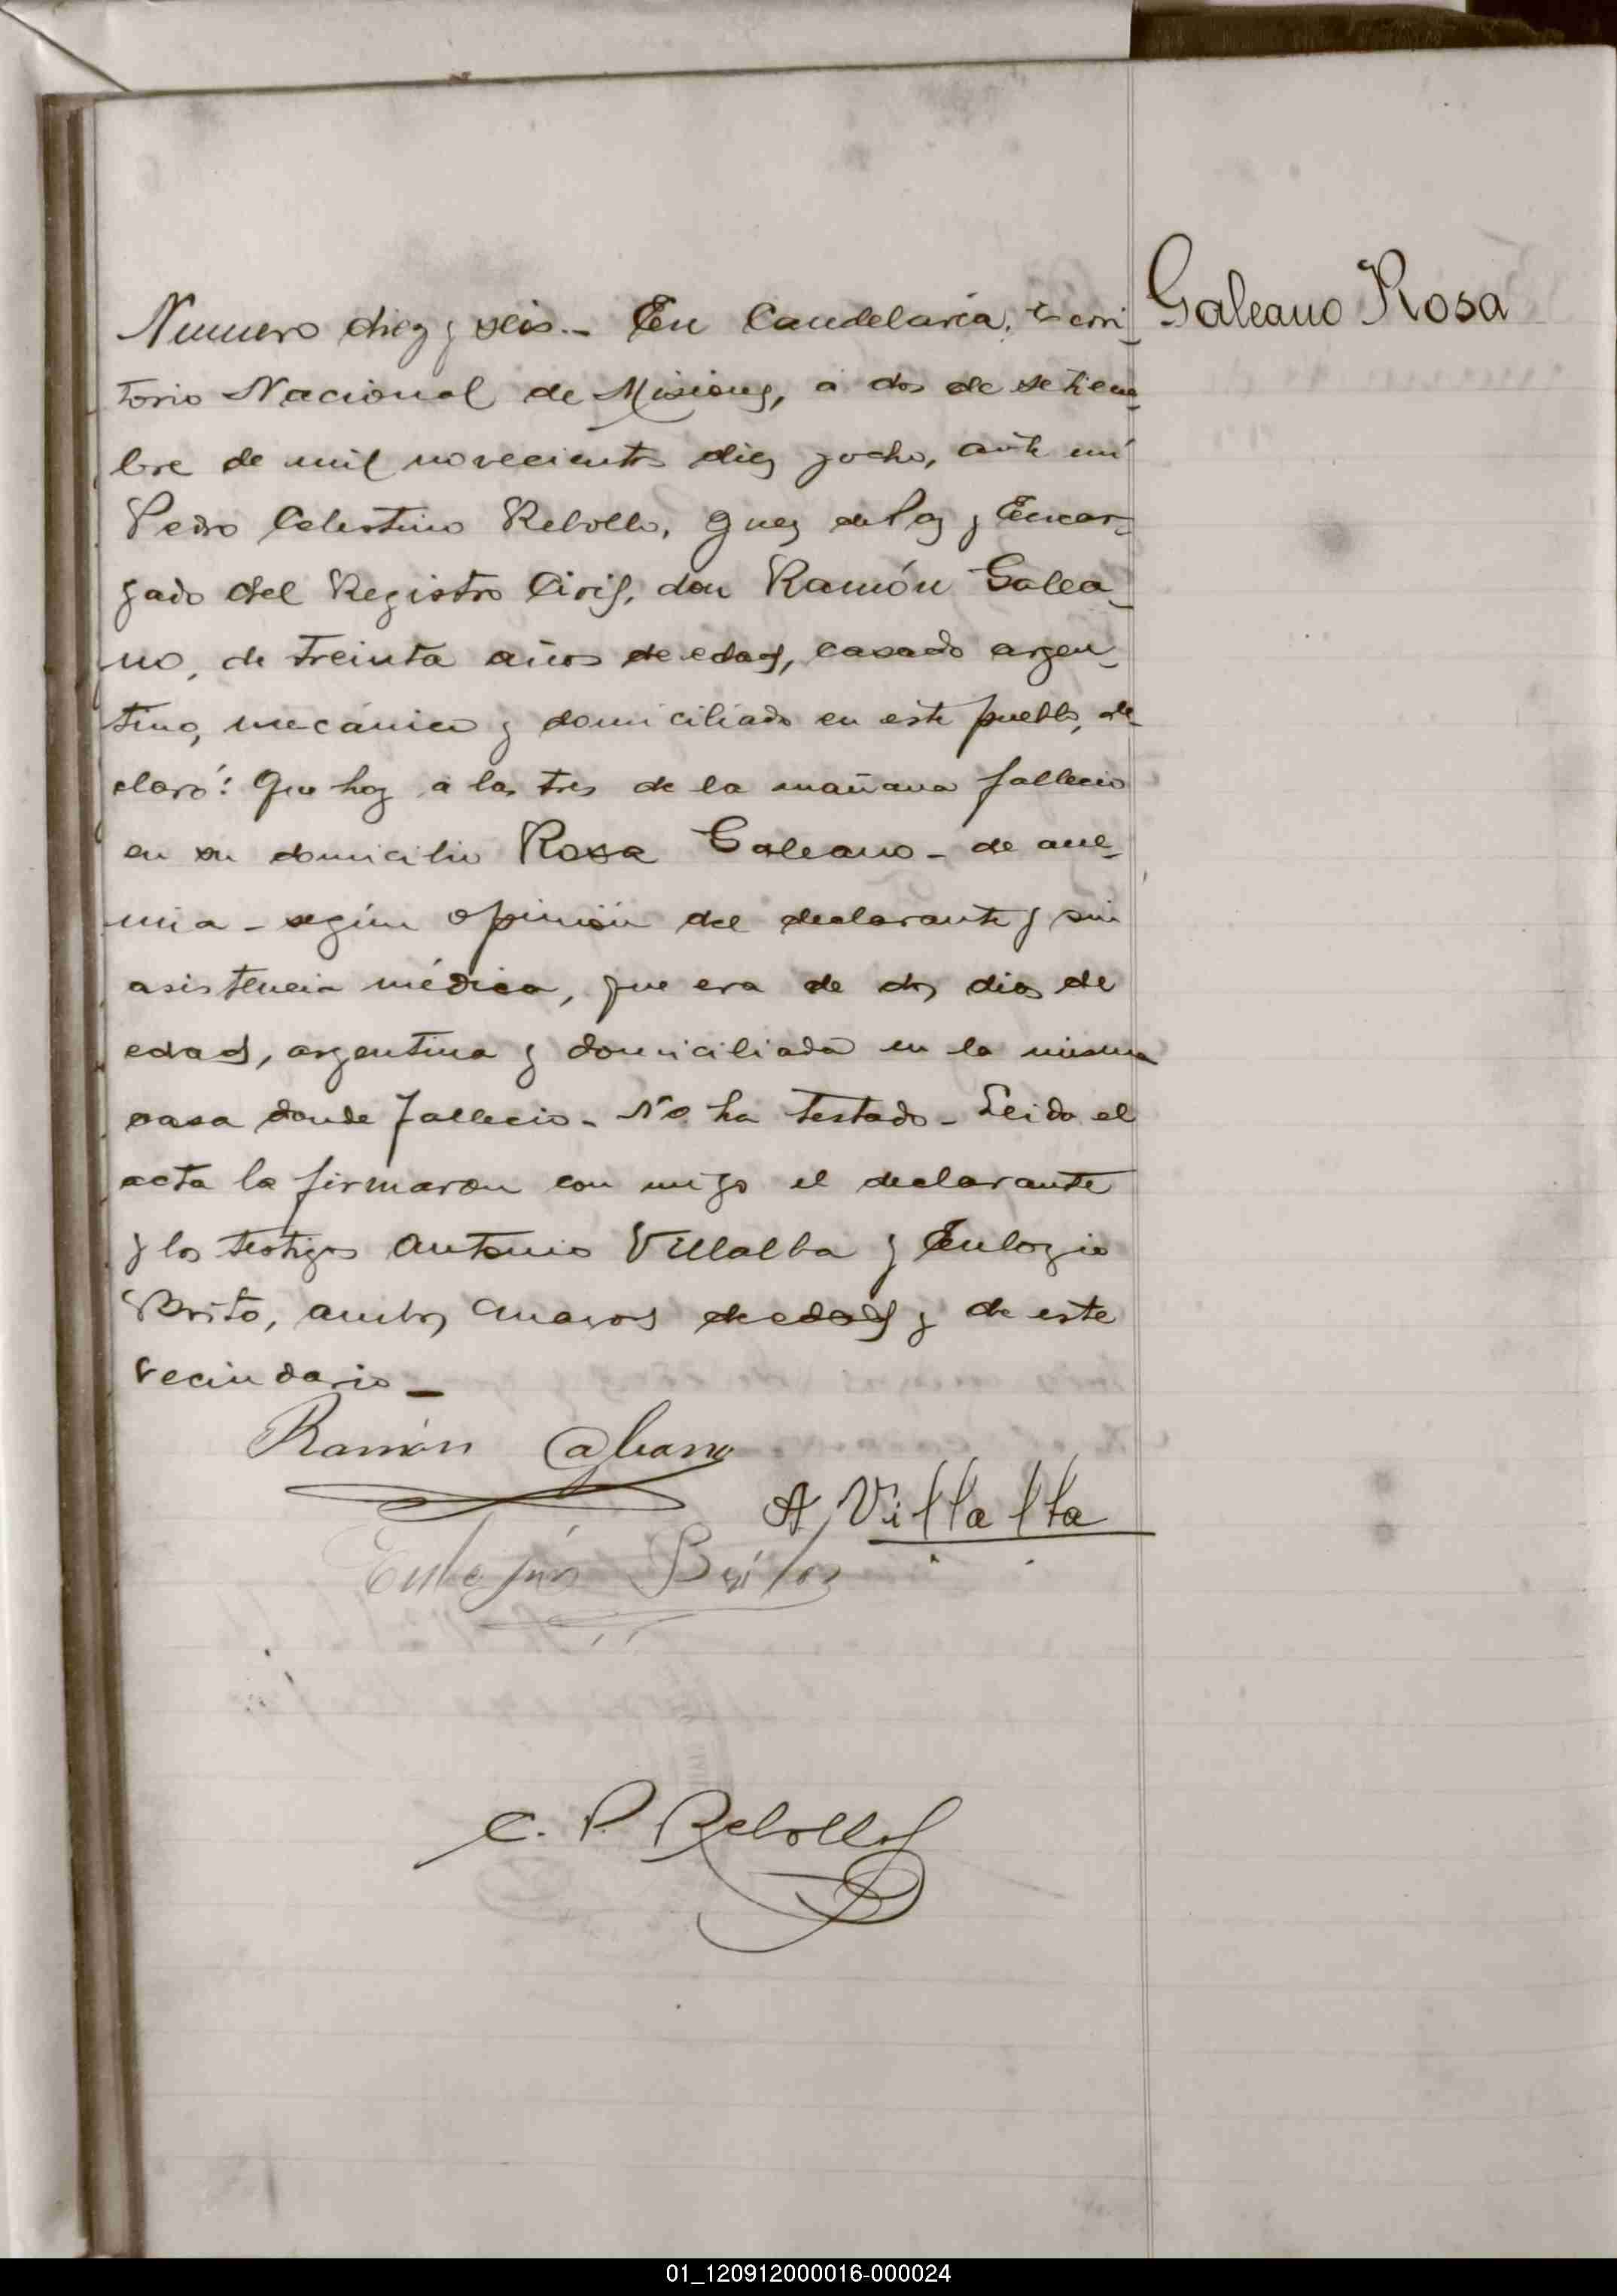 Numero diez y seis.- En Candelaria, Terri-
torio Nacional de Misiones, á dos de setiem-
bre de mil novecientos diez y ocho, ante mi
Pedro Celestino Rebollo, Juez de Paz y Encar-
gado del Registro Civil, don Ramón Galea-
no, de treinta años de edad, casado argen-
tino, mecánico y domiciliado en este pueblo, de-
claró: Que hoy á las tres de la mañana fallecio
en su domicilio Rosa Galeano - de ane-
mia - según opinión del declarante y sin
asistencia médica, que era de dos dias de
edad, argentina y domiciliada en la misma
casa donde fallecio - No ha testado - Leida el
acta la firmaron con migo el declarante
y los testigos Antonio Villalba y Eulogio
Brito, ambos mayores de edad y de este
vecindario -
Galeano Rosa
Ramón Galeano
A Villalba
Brítos
C. P. Rebollo
01_120912000016-000024